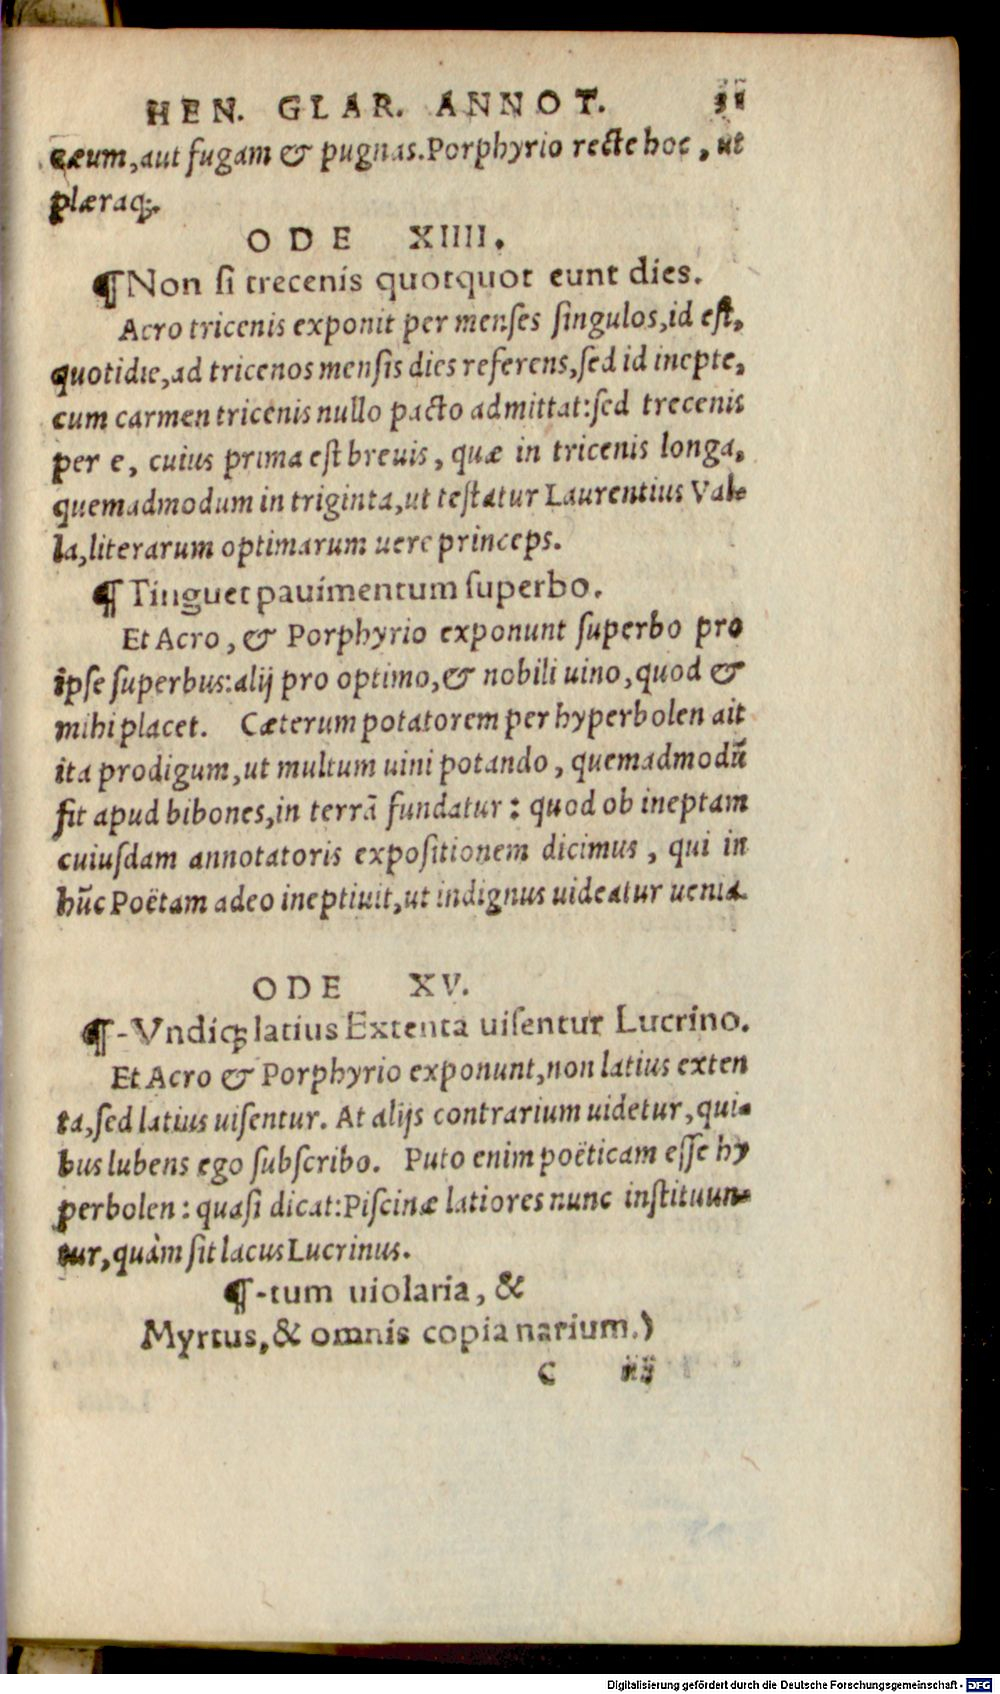 HEN. GLAR. ANNOT. 11
cæum, aut fugam & pugnas. Porphyrio recte hoc, ut
plæraq;.
ODE XIIII.
¶ Non ſi trecenis quotquot eunt dies.
Acro tricenis exponit per menſes ſingulos, id eſt,
quotidie, ad tricenos menſis dies referens, ſed id inepte,
cum carmen tricenis nullo pacto admittat: ſed trecenis
per e, cuius prima eſt breuis, quæ in tricenis longa,
quemadmodum in triginta, ut teſtatur Laurentius Val-
la, literarum optimarum uere princeps.
¶ Tinguet pauimentum ſuperbo.
Et Acro, & Porphyrio exponunt ſuperbo pro
ipſe ſuperbus: alij pro optimo, & nobili uino, quod &
mihi placet. Cæterum potatorem per hyperbolen ait
ita prodigum, ut multum uini potando, quemadmodū
fit apud bibones, in terrā fundatur: quod ob ineptam
cuiuſdam annotatoris expoſitionem dicimus, qui in
hūc Poëtam adeo ineptiuit, ut indignus uideatur uenia.
ODE XV.
¶ -Vndiq; latius Extenta uiſentur Lucrino.
Et Acro & Porphyrio exponunt, non latius exten
ta, ſed latius uiſentur. At alijs contrarium uidetur, qui-
bus lubens ego ſubſcribo. Puto enim poëticam eſſe hy
perbolen: quaſi dicat: Piſcinæ latiores nunc inſtituun-
tur, quàm ſit lacus Lucrinus.
¶ -tum uiolaria, &
Myrtus, & omnis copia narium.)
C iij
Digitalisierung gefördert durch die Deutsche Forschungsgemeinschaft - DFG